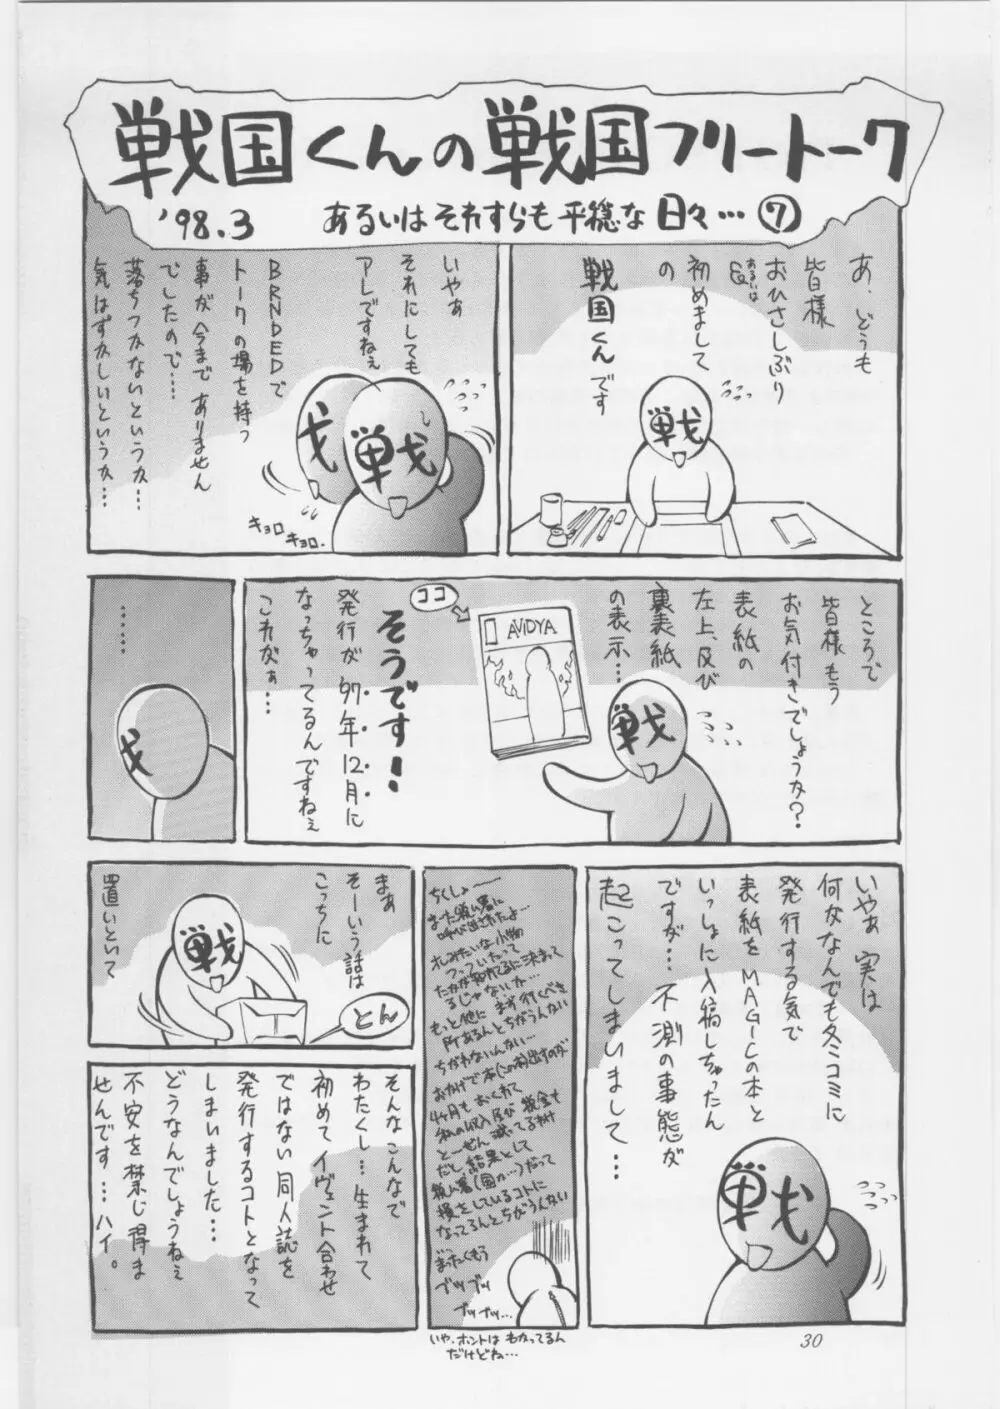 戦国くんの戦国フリートーク
'98.3
あるいはそれすらも平穏な日々…⑦
あ、どうも
皆様
おひさしぶり
&
あるいは
初めまして
の
戦国くんです
戦
いやぁ
それにしても
アレですねぇ
BRNDEDで
トークの場を持つ
事が今までありません
でしたので…
落ちつかないというか…
気はずかしいというか…
戦
キョロ
キョロ.
ところで
皆様もう
お気付きでしょうか?
表紙の
左上、及び
裏表紙
の表示…
ココ
AVIDYA
戦
そうです!
発行が'97年12月に
なっちゃってるんですねぇ
これがぁ…
……
いやぁ 実は
何がなんでも冬コミに
発行する気で
表紙をMAGICの本と
いっしょに入稿しちゃったん
ですが… 不測の事態が
起こってしまいまして…
戦
ちくしょー
また税ム署に
呼び出されたよ…
オレみたいな小物
つっついたって
たかが知れてるに決まって
るじゃないか…
もっと他にまず行くべき
所あるんとちがうんかい
ちがわないんかい…
おかげで本(この本)出すのが
4ヶ月もおくれて
私の収入及び税金も
とーぜん減ってるわけ
だし 結果として
税ム署(国か…)だって
損をしているコトに
なってるんとちがうんかい
まったくもう
ブツブツ
ブツブツ…
いや、ホントはわかってるん
だけどね…
まぁ
そーいう話は
こっちに
置いといて
戦
とん
そんなこんなで
わたくし… 生まれて
初めてイヴェント合わせ
ではない同人誌を
発行するコトとなって
しまいました…
どうなんでしょうねぇ
不安を禁じ得ま
せんです…ハイ。
30